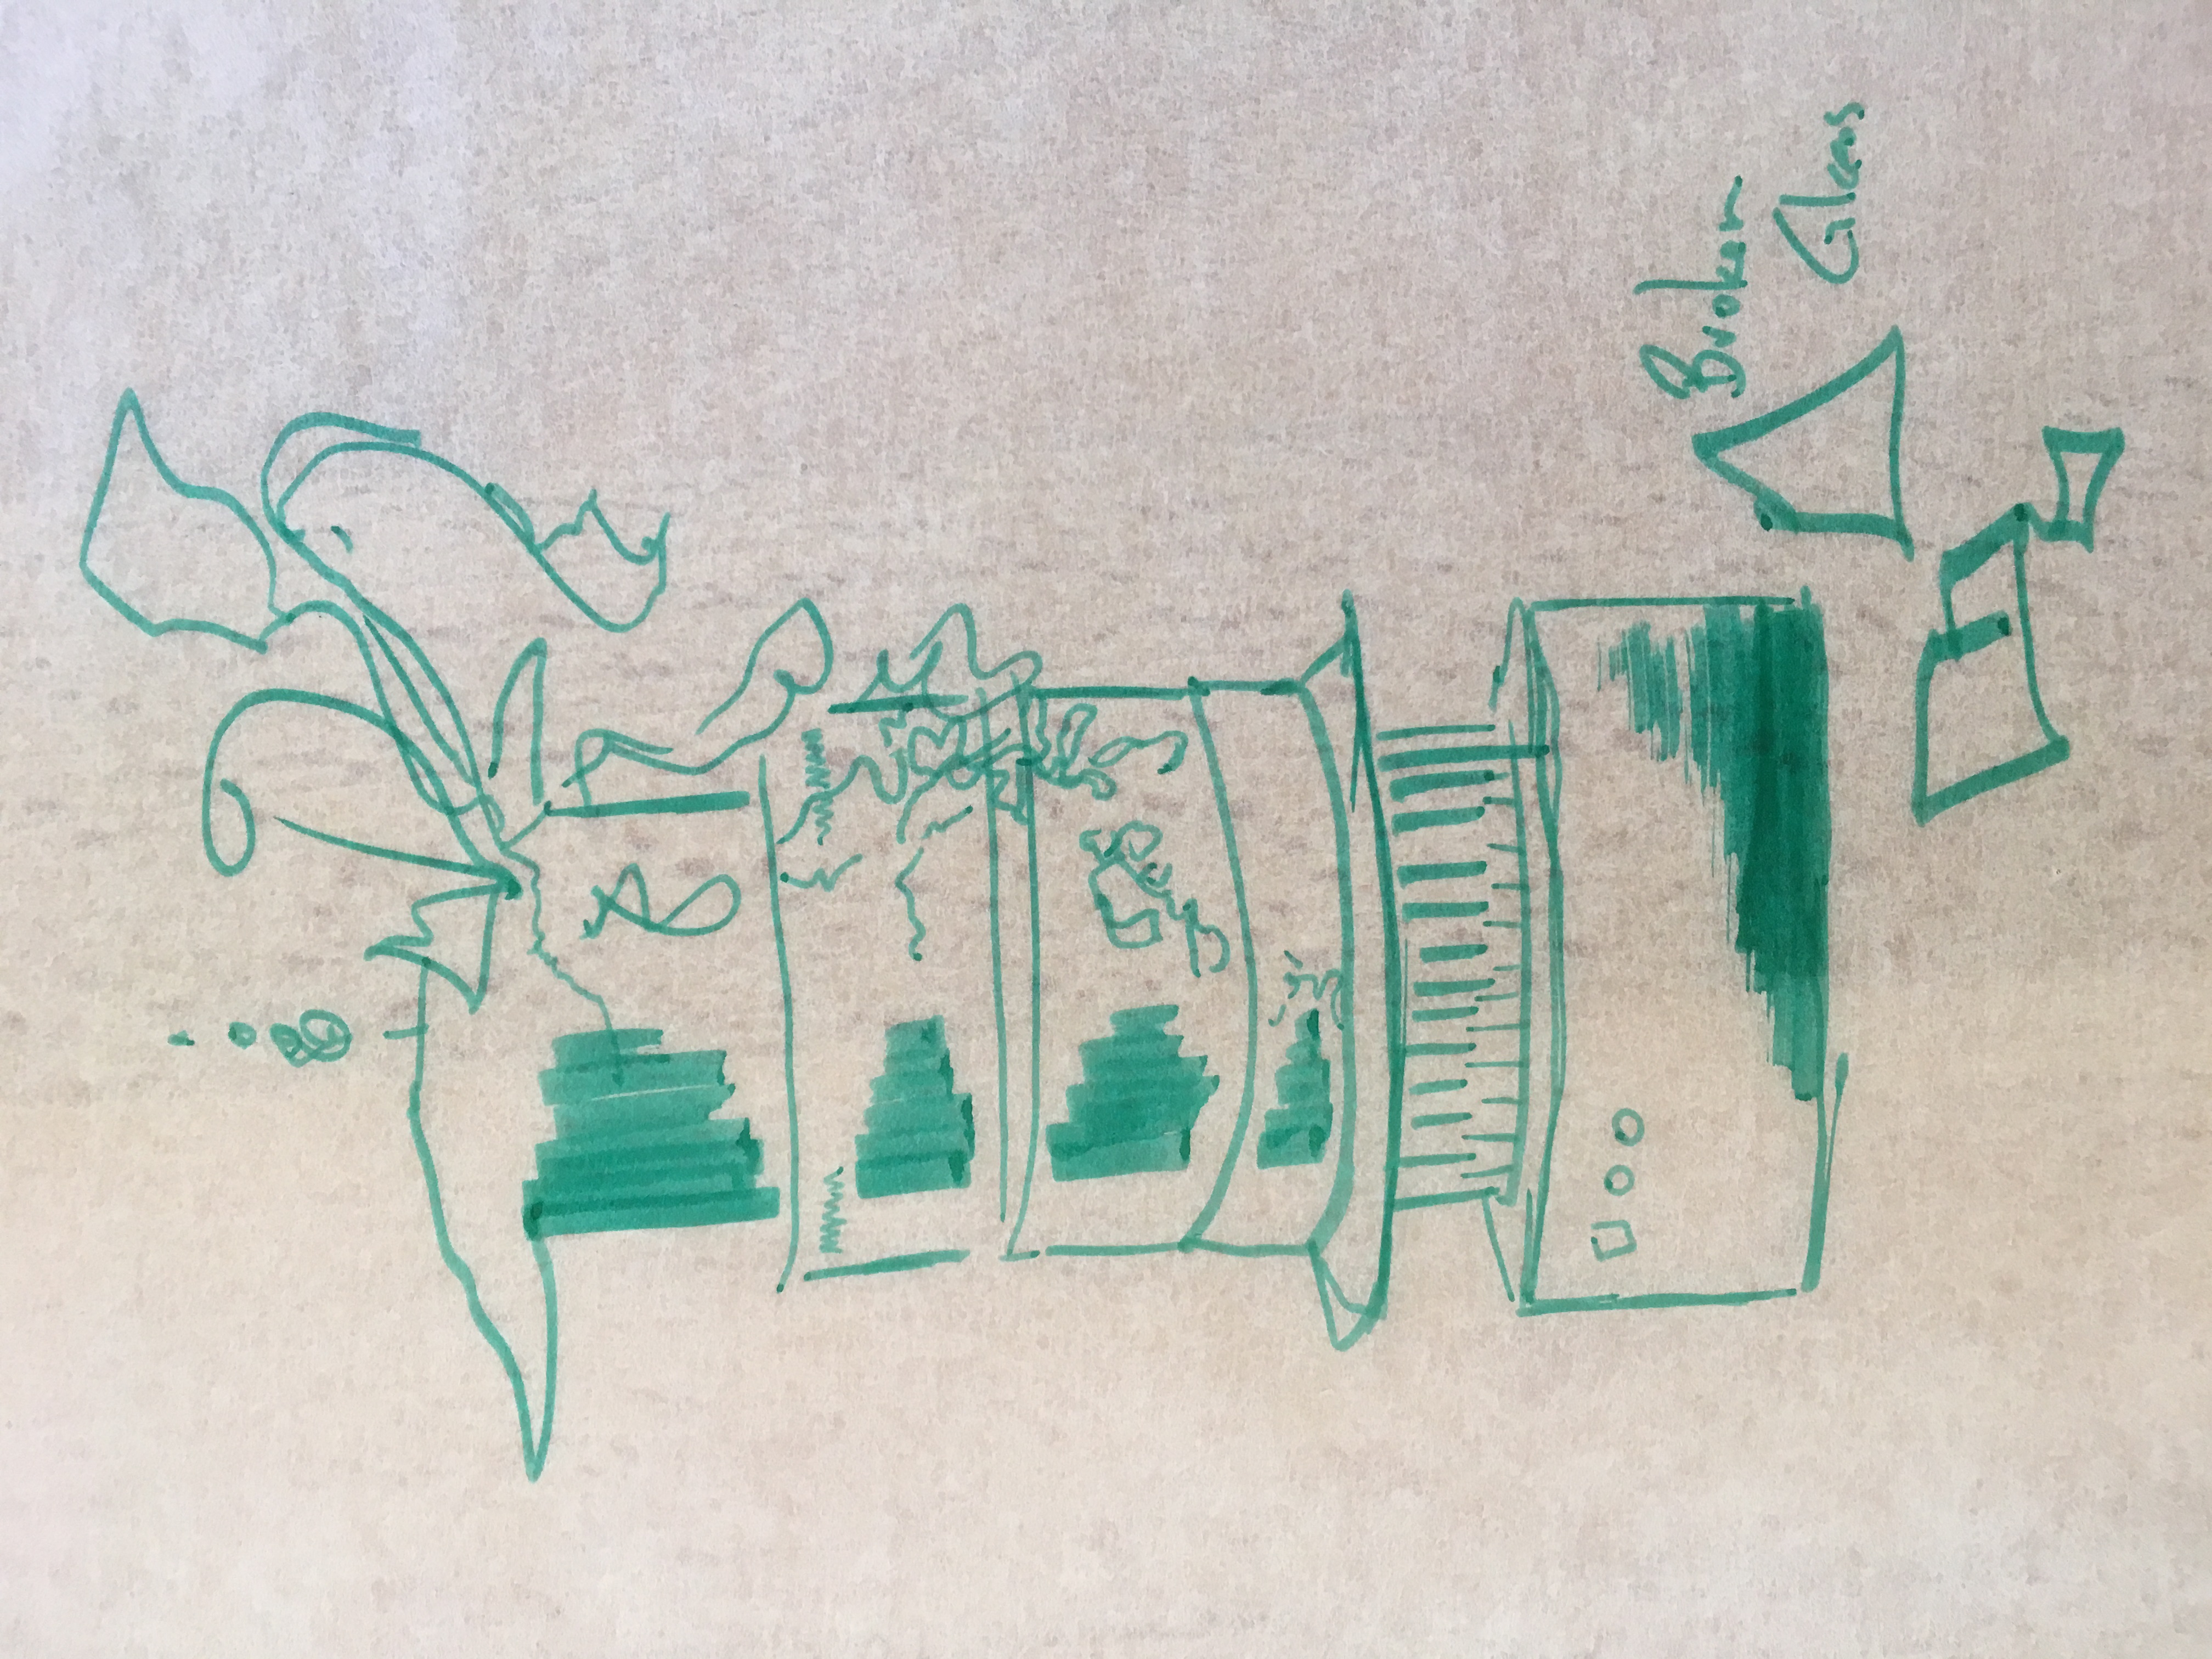 Broken
Glass